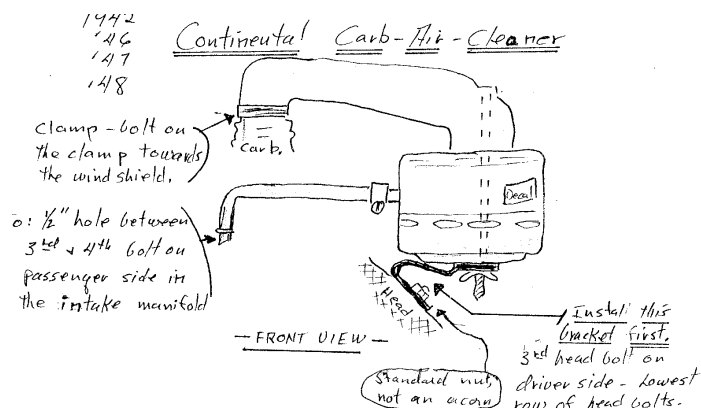 1942
'46
'47
'48
Continental Carb-Air-Cleaner
clamp-bolt on
the clamp towards
the windshield.
Carb.
Decal
o: 1/2" hole between
3rd & 4th bolt on
passenger side in
the intake manifold
Head
- FRONT VIEW -
Install this
bracket first.
3rd head bolt on
driver side - Lowest
row of head bolts.
Standard nut,
not an acorn